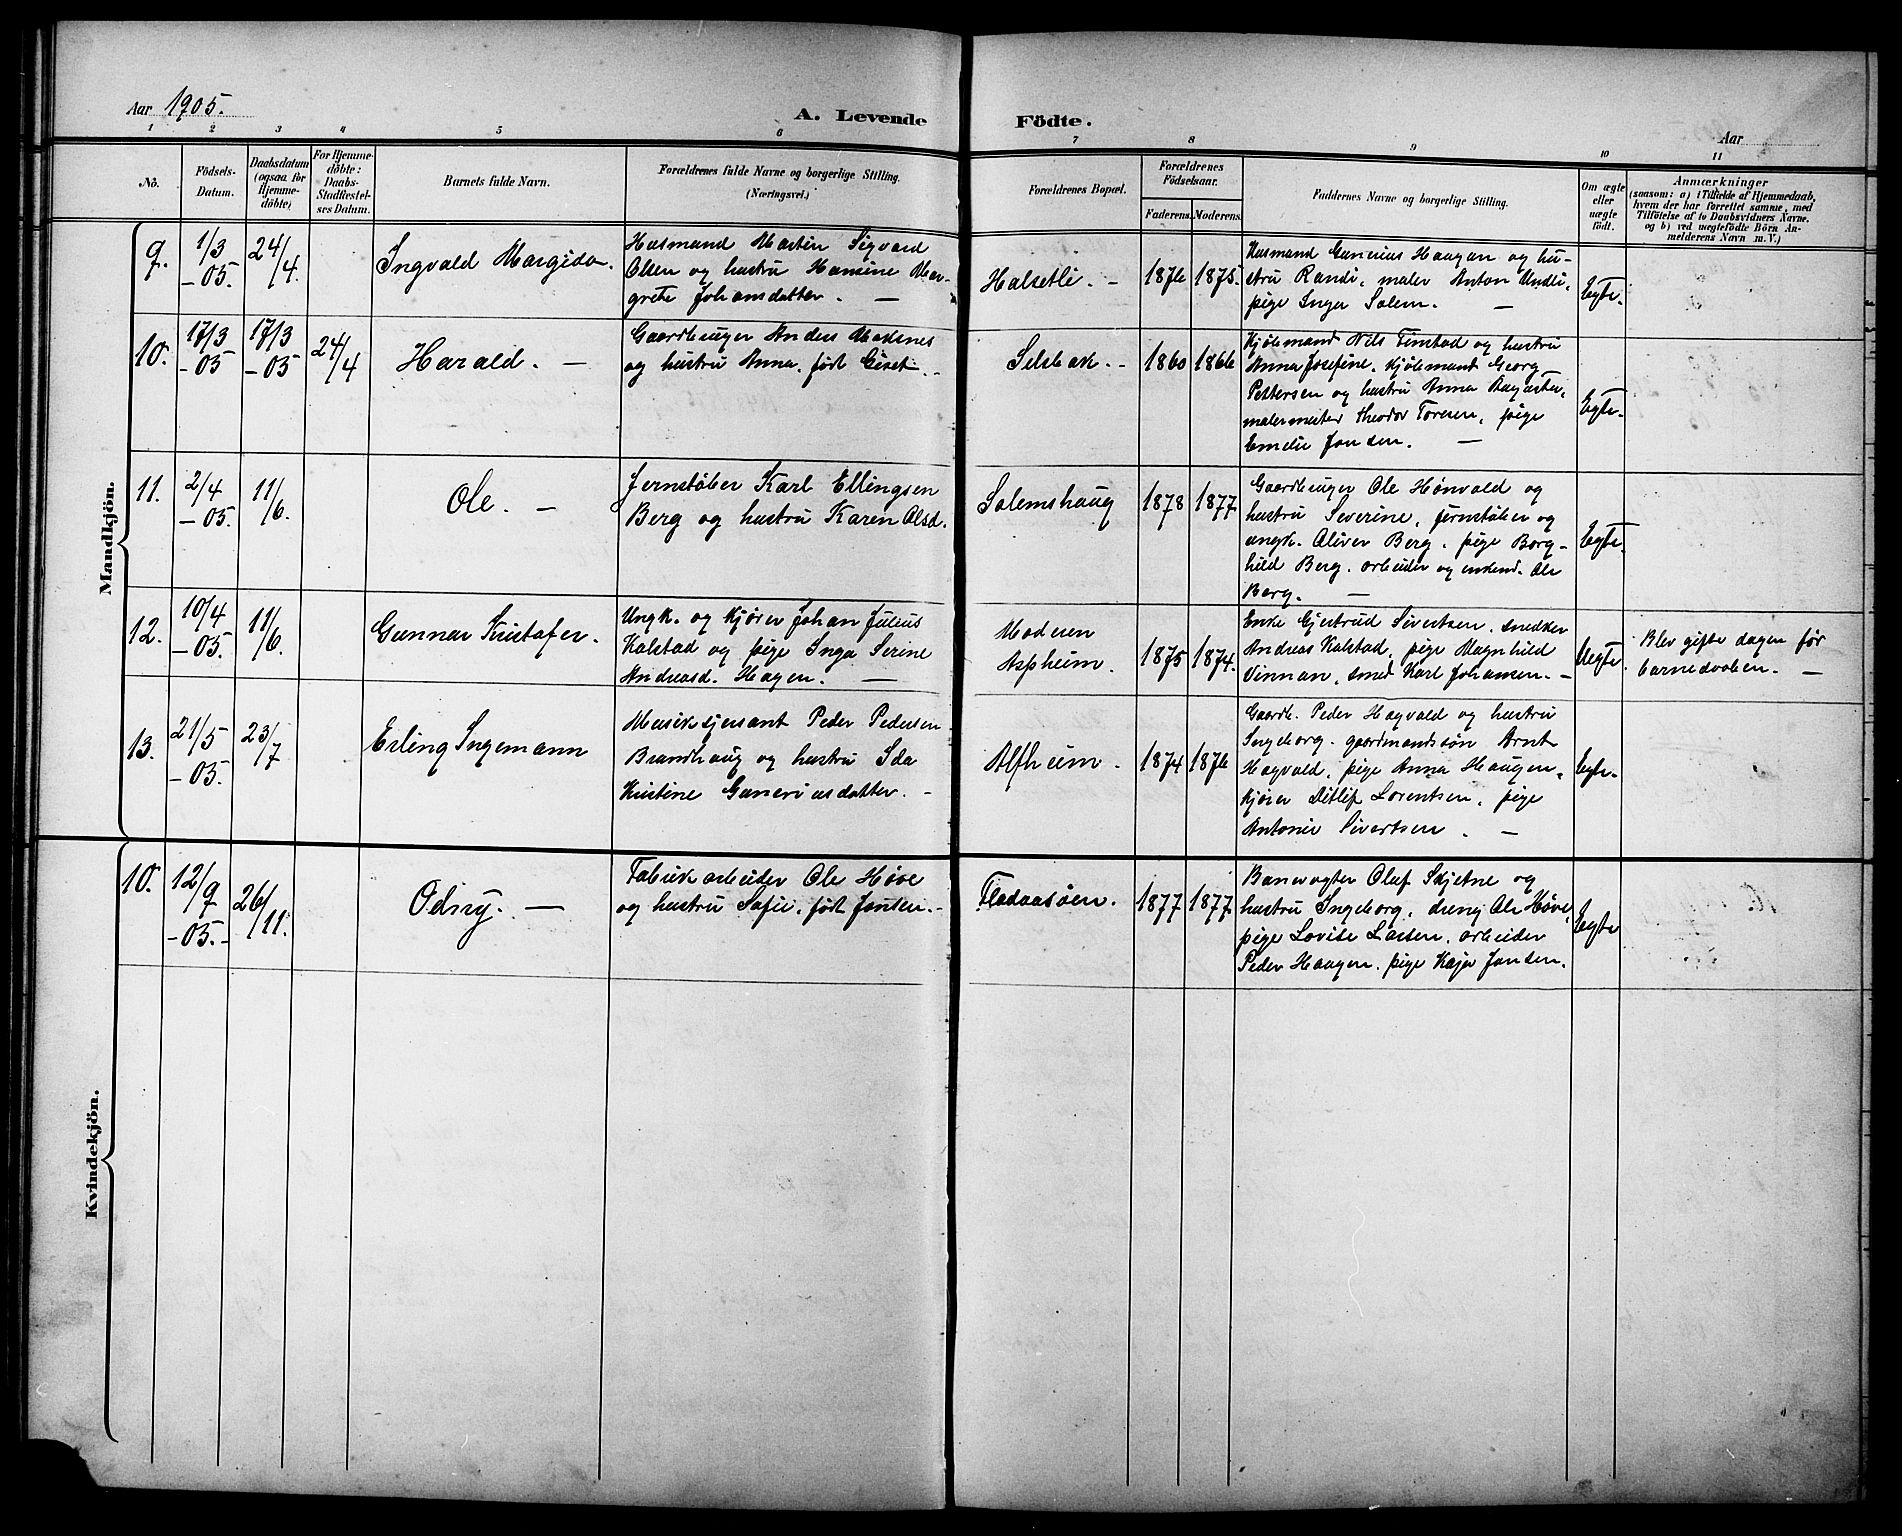 Aar 1905.
A. Levende
Födte.
Aar
1 2 3 4 5 6 7 8 9 10 11
No.
Födsels-
Datum.
Daabsdatum
(ogsaa for
Hjemme-
döbte)
For Hjemme-
döbte:
Daabs-
Stadfæstel-
ses Datum.
Barnets fulde Navn.
Forældrenes fulde Navne og borgerlige Stilling.
(Næringsvei.)
Forældrenes Bopæl.
Forældrenes
Födselsaar.
Faderens. Moderens.
Faddernes Navne og borgerlige Stilling.
Om ægte
eller
uægte
födt.
Anmærkninger
(saasom: a) i Tilfælde af Hjemmedaab,
hvem der har forrettet samme, med
Tilföielse af to Daabsvidners Navne,
og b) ved uægtefödte Börn An-
melderens Navn m. V.)
Mandkjön.
9.
1/3
-05.
24/4.
Ingvald Margido.
Husmand Martin Sigvard
Olsen og hustru Hansine Mar-
grete Johansdatter. —
Halsetli. -
1876 1875.
Husmand Gunerius Haagen og hu-
stru Randi, maler Anton Undli,
pige Inga Solem. —
Egte.
10.
17/3
-05
17/3
-05
24/4
Harald. —
Gaardbruger Anders Madsnes
og hustru Anna, født Giset. -
Selsbak. -
1860 1866
Kjøbmand Nils Finstad og hustru
Anna Josefine, kjøbmand Georg
Pettersen og hustru Anna Augusta,
malermester Theodor Toresen, pige
Emelie Jonsen. —
Egte.
11.
2/4
-05.
11/6.
Ole. —
Jernstøber Karl Ellingsen
Berg og hustru Karen Olsd.
Solemshaug
1878 1877.
Gaardbruger Ole Hønvald og
hustru Severine, jernstøber og
ungk. Oliver Berg, pige Borg-
hild Berg. arbeider og Ole
Berg. —
Egte.
12.
10/4
-05.
11/6.
Gunnar Kristofer.
Ungk. og kjører Johan Julius
Kalstad og pige Inga Serine
Andreasd. Hagen. —
Moderen
Aspheim.
1875 1874.
Enke Gjertrud Sivertsen, snedker
Andreas Kalstad, pige Magnhild
Vinnan, smed Karl Johansen. -
Uegte.
Blev gifte dagen før
barnedaaben. —
13.
21/5
-05.
23/7
Erling Ingemann
Musiksjersant Peder Pedersen
Brandhaug og hustru Ida
Kristine Guneriusdatter. -
Alfheim.
1874 1876
Gaardb. Peder Hagvald og hustru
Ingeborg, gaardmandssøn Arnt
Hagvald, pige Anna Haugen,
kjører Ditlef Lorentsen, pige
Antonie Sivertsen. —
Egte.
Kvindekjön.
10.
12/9
-05.-
26/11.
Odny. —
Fabrikarbeider Ole Høve
og hustru Sofie, født Jonsen. -
Flodaasøen.
1877 1877.
Banevogter Oluf Skjetne og
hustru Ingeborg, dreng Ole Høve,
pige Lovise Larsen, arbeider
Peder Haagen. pige Kaja Jonsen.
Egte